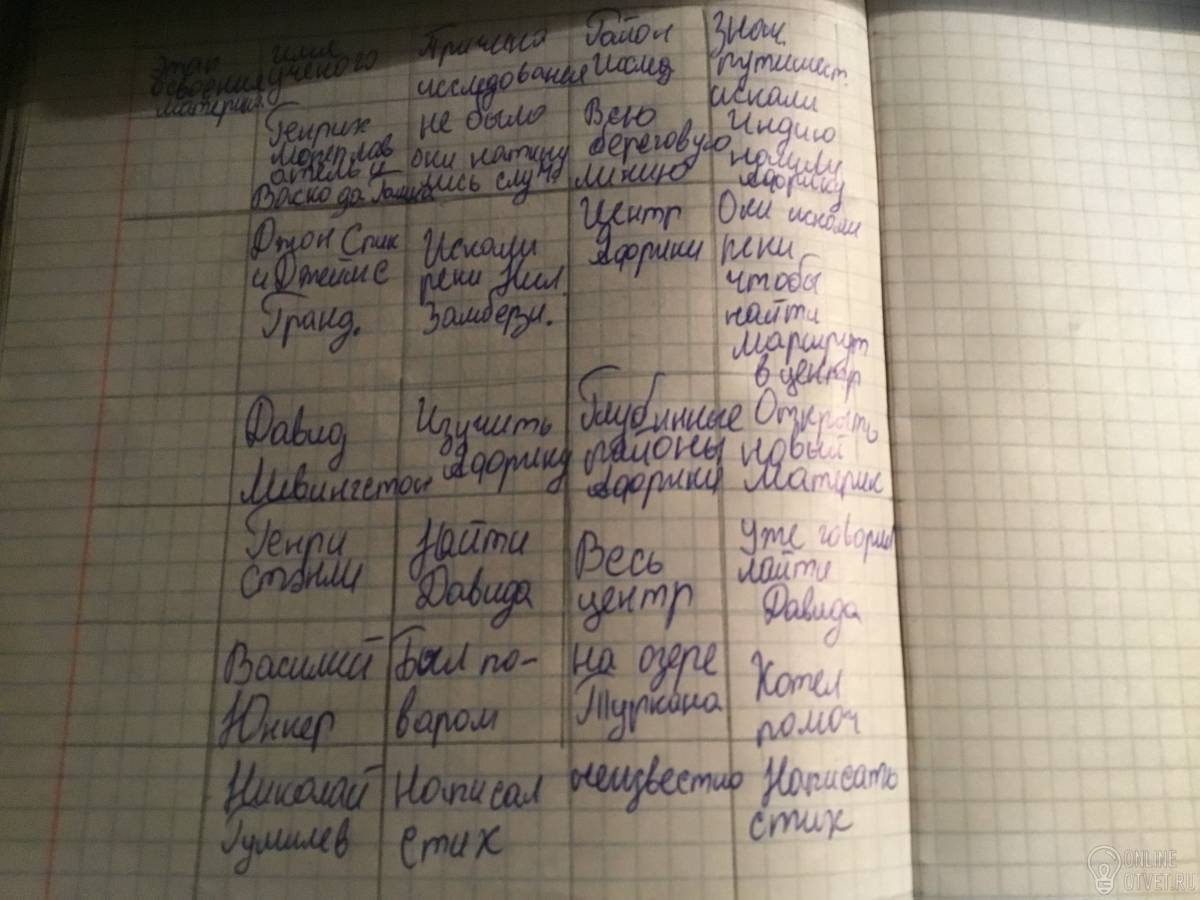 Этап освоения материка.
Имя ученого
Причина исследования
Район Исслед
Знач. путишест.
Генрих мореплаватель и Васко да Гамма
не было они наткнулись случ.
Всю береговую линию
искали Индию нашли Африку
Джон Спик и Джеймс Гранд.
Искали реки Нил Замбези.
Центр Африки
Они искали реки чтобы найти маршрут в центр
Давид Ливингстон
Изучить Африку
Глубинные районы Африки
Открыть новый Материк
Генри Стэнли
Найти Давида
Весь центр
Уже говорил найти Давида
Василий Юнкер
Был по-варом
на озере Туркана
Хотел помоч
Николай Гумилев
Написал стих
неизвестно
Написать стих
ONLINE
OTVET.RU